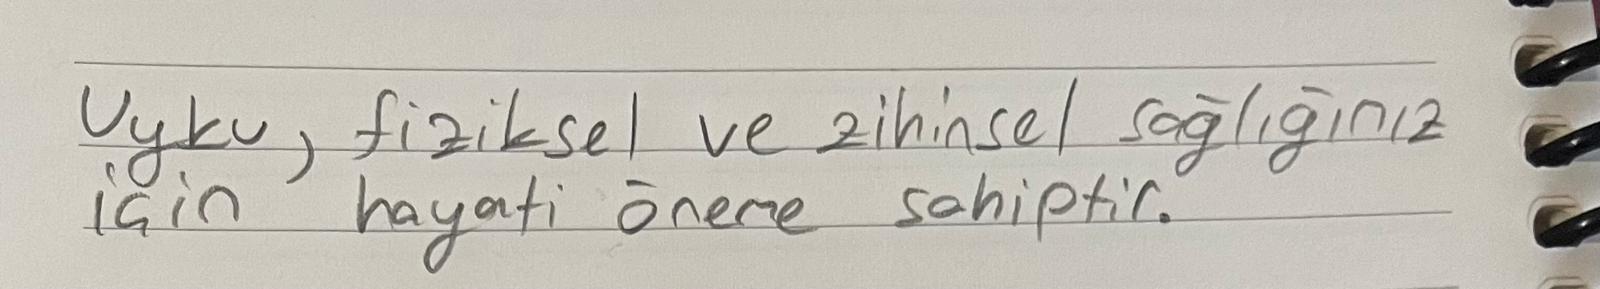 Uyku, fiziksel ve zihinsel sağlığınız
için hayati öneme sahiptir.